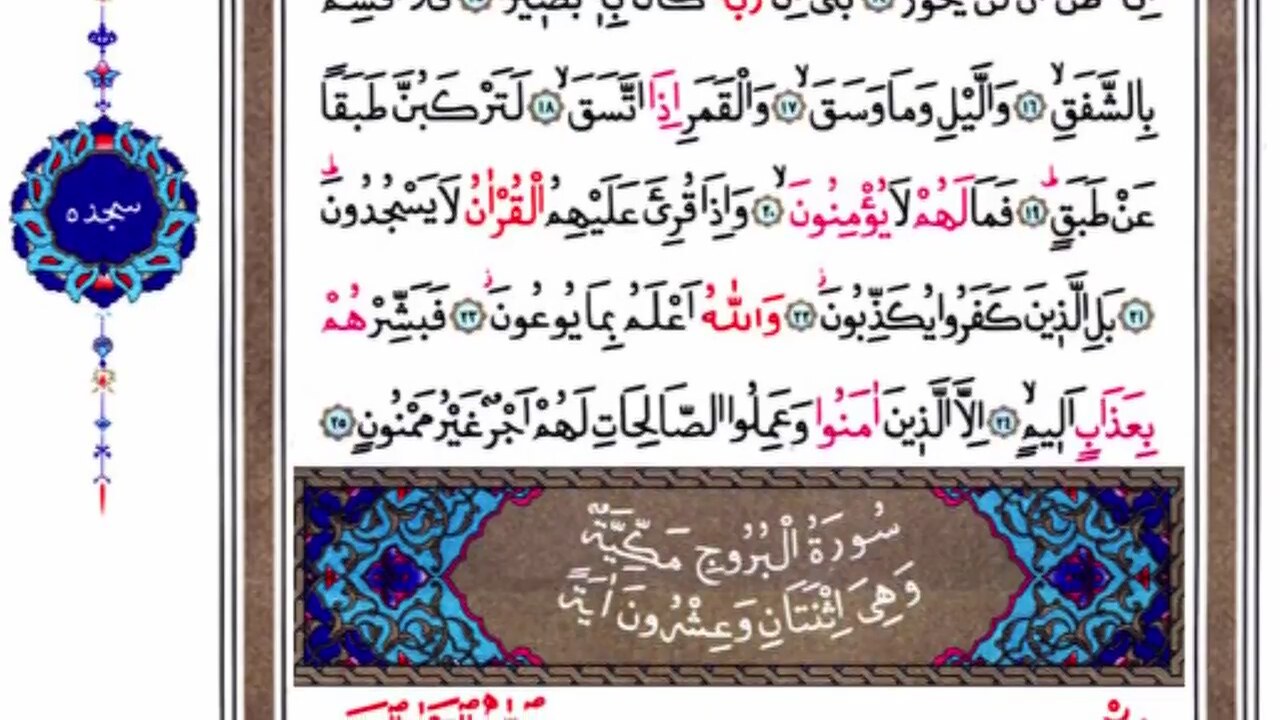 بِالشَّفَقِۙ ﴿١٦﴾ وَالَّيْلِ وَمَا وَسَقَۙ ﴿١٧﴾ وَالْقَمَرِ اِذَا اتَّسَقَۙ ﴿١٨﴾ لَتَرْكَبُنَّ طَبَقًا
عَنْ طَبَقٍۜ ﴿١٩﴾ فَمَا لَهُمْ لَا يُؤْمِنُونَۙ ﴿٢٠﴾ وَاِذَا قُرِئَ عَلَيْهِمُ الْقُرْاٰنُ لَا يَسْجُدُونَۜ
سجده
﴿٢١﴾ بَلِ الَّذ۪ينَ كَفَرُوا يُكَذِّبُونَۘ ﴿٢٢﴾ وَاللّٰهُ اَعْلَمُ بِمَا يُوعُونَۘ ﴿٢٣﴾ فَبَشِّرْهُمْ
بِعَذَابٍ اَل۪يمٍۙ ﴿٢٤﴾ اِلَّا الَّذ۪ينَ اٰمَنُوا وَعَمِلُوا الصَّالِحَاتِ لَهُمْ اَجْرٌ غَيْرُ مَمْنُونٍ ﴿٢٥﴾
سُورَةُ الْبُرُوجِ مَكِّيَّةٌ
وَهِيَ اِثْنَتَانِ وَعِشْرُونَ اٰيَةً